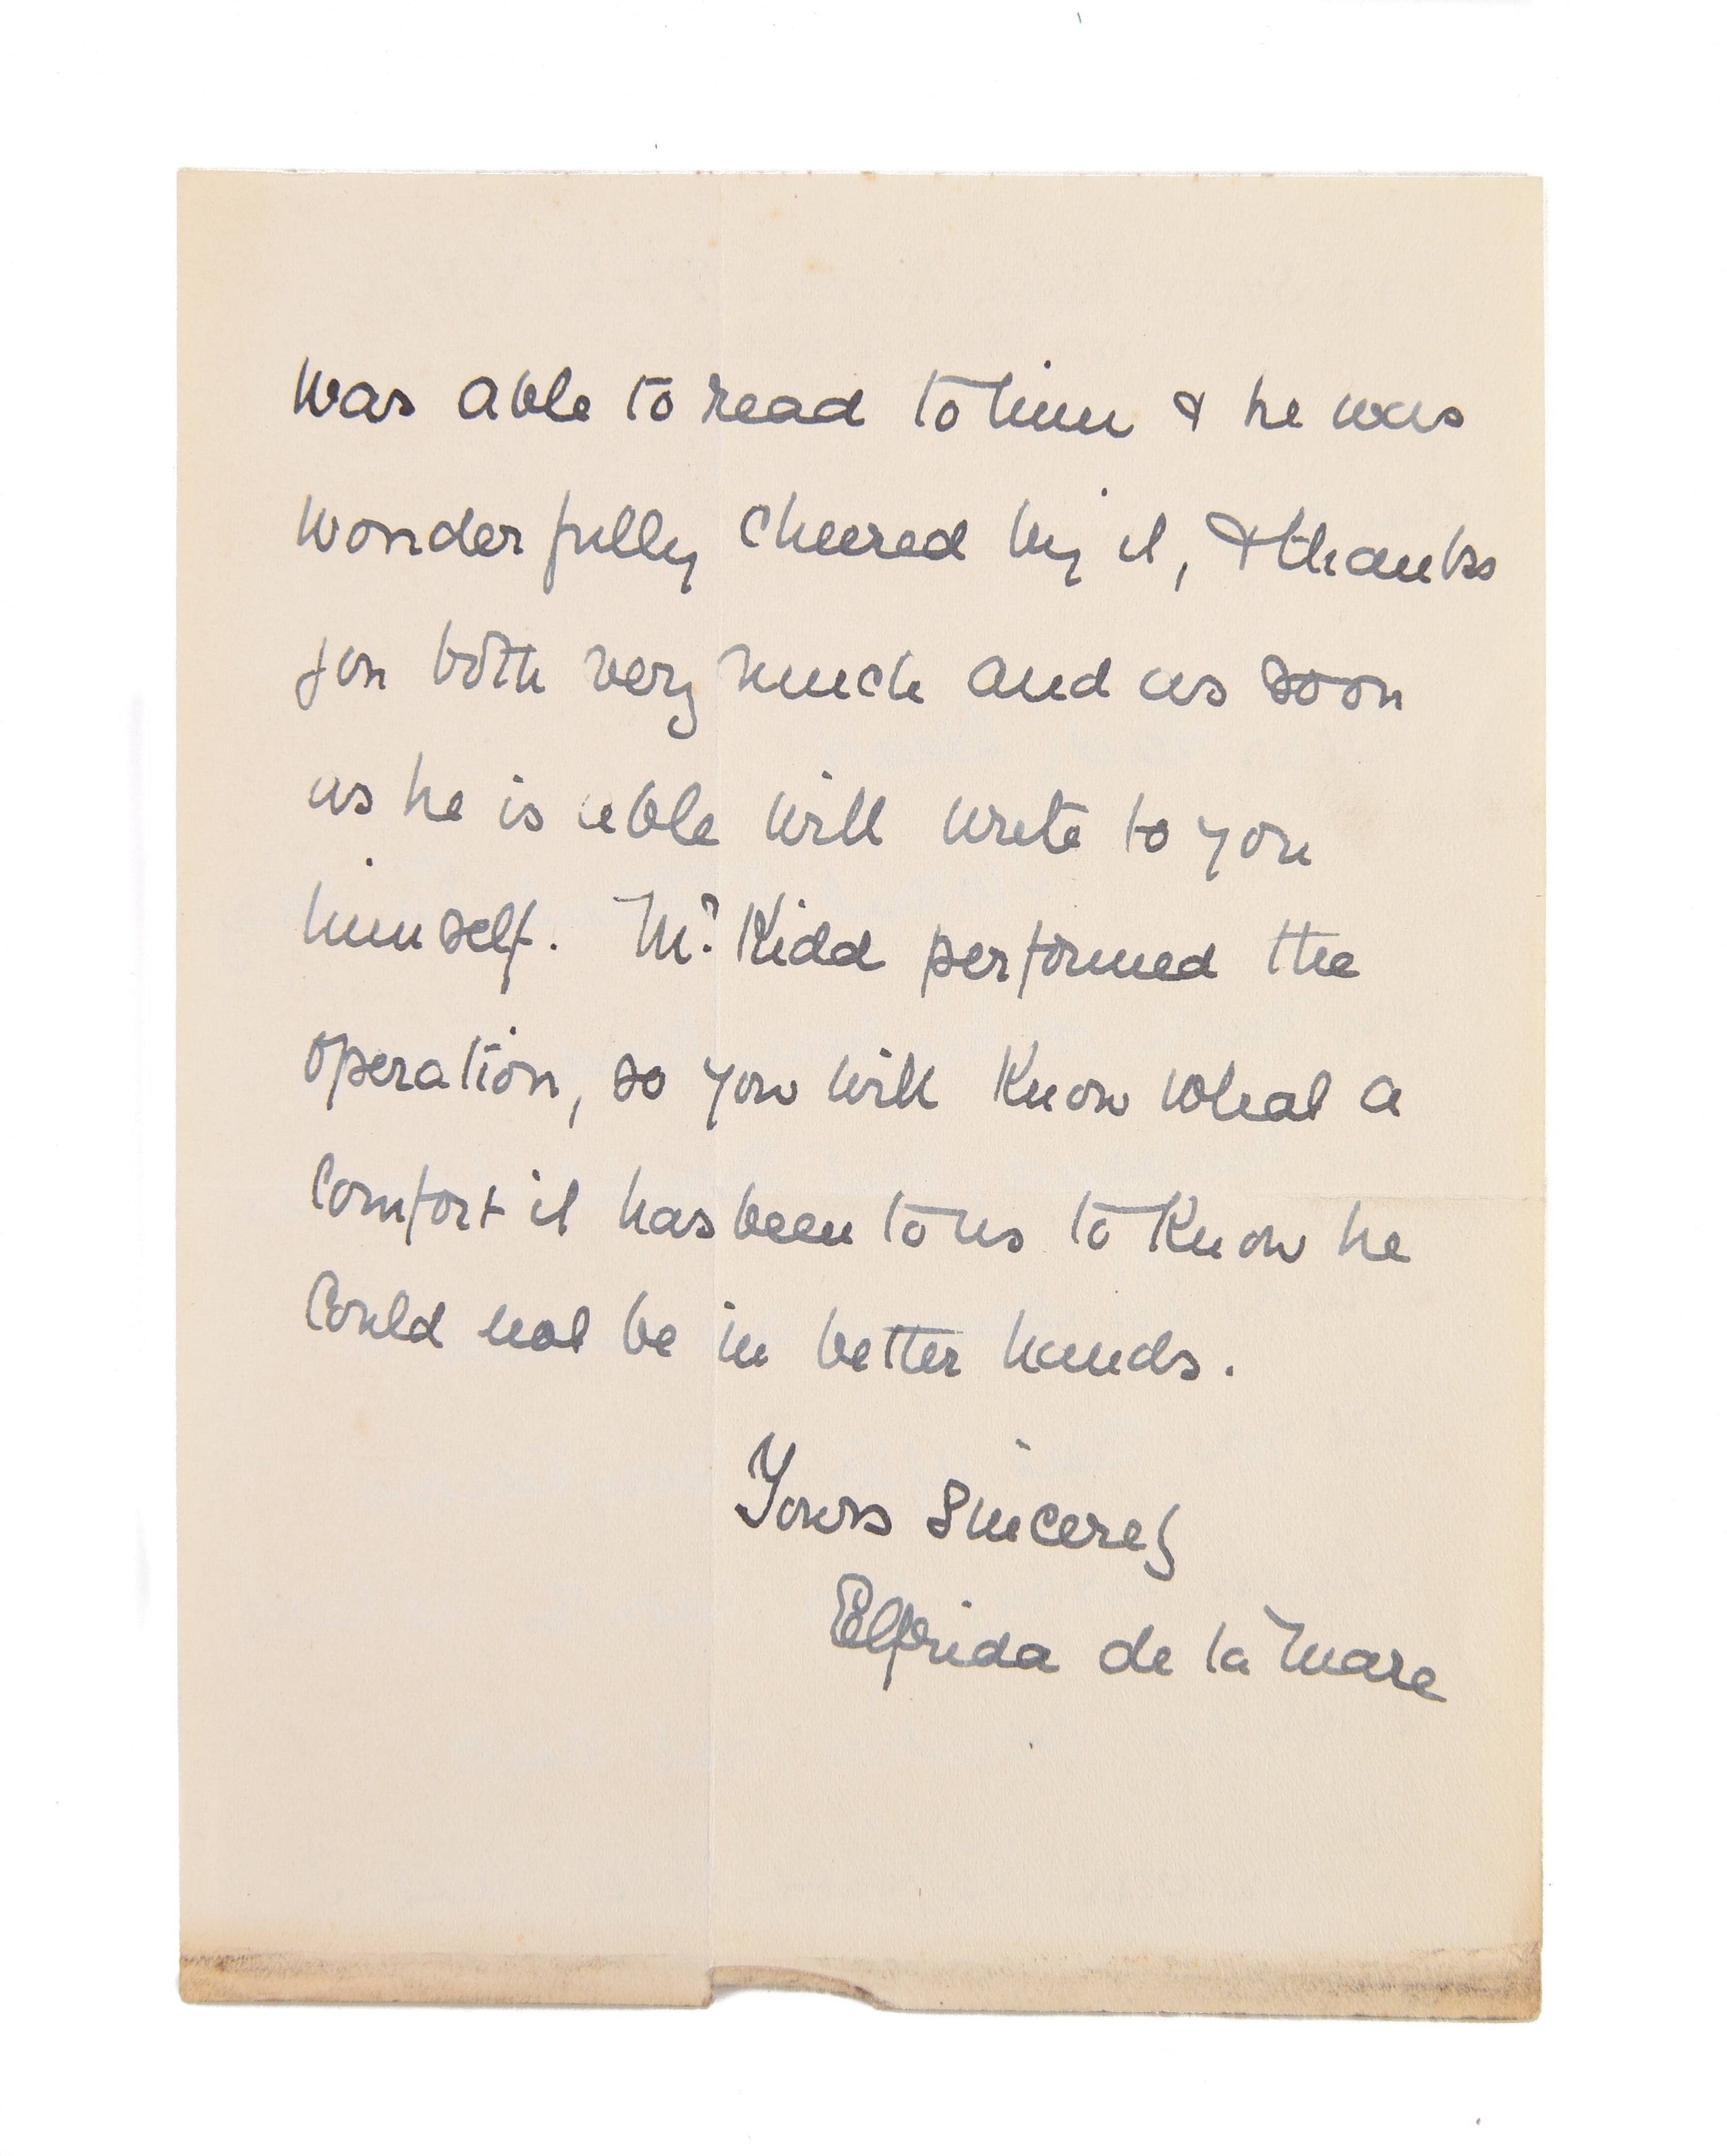 was able to read to him & he was
wonderfully cheered by it, & thanks
you both very much and as soon
as he is able will write to you
himself. Mr. Kidd performed the
operation, so you will know what a
comfort it has been to us to know he
could not be in better hands.
Yours sincerely
Elfrida de la Mare